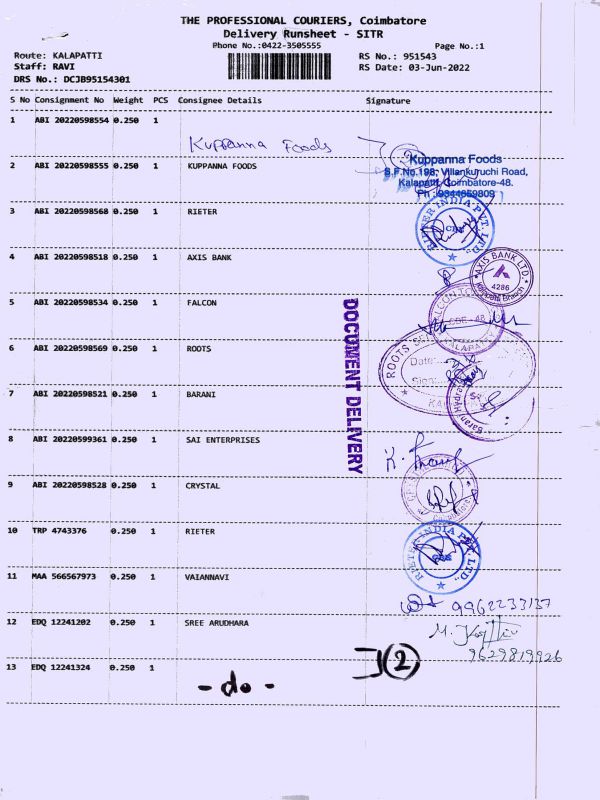 THE PROFESSIONAL COURIERS, Coimbatore
Delivery Runsheet - SITR
Phone No.:0422-3505555 Page No.:1
Route: KALAPATTI RS No.: 951543
Staff: RAVI RS Date: 03-Jun-2022
DRS No.: DCJB95154301
S No Consignment No Weight PCS Consignee Details Signature
1 ABI 20220598554 0.250 1
Kuppanna Foods
Kuppanna Foods
S.F.No.198, Villankuruchi Road,
Kalapatti, Coimbatore-48.
2 ABI 20220598555 0.250 1 KUPPANNA FOODS
3 ABI 20220598568 0.250 1 RIETER
RIETER INDIA PVT. LTD.
4 ABI 20220598518 0.250 1 AXIS BANK
AXIS BANK LTD.
4286
Kalapatti Branch
5 ABI 20220598534 0.250 1 FALCON
CBE - 48
KALAPATTY
DOCUMENT DELIVERY
6 ABI 20220598569 0.250 1 ROOTS
ROOTS
Date:
Sign:
7 ABI 20220598521 0.250 1 BARANI
8 ABI 20220599361 0.250 1 SAI ENTERPRISES
9 ABI 20220598528 0.250 1 CRYSTAL
10 TRP 4743376 0.250 1 RIETER
RIETER INDIA PVT. LTD.
11 MAA 566567973 0.250 1 VAIANNAVI
9962233137
12 EDQ 12241202 0.250 1 SREE ARUDHARA
9629819926
13 EDQ 12241324 0.250 1
- do -
2